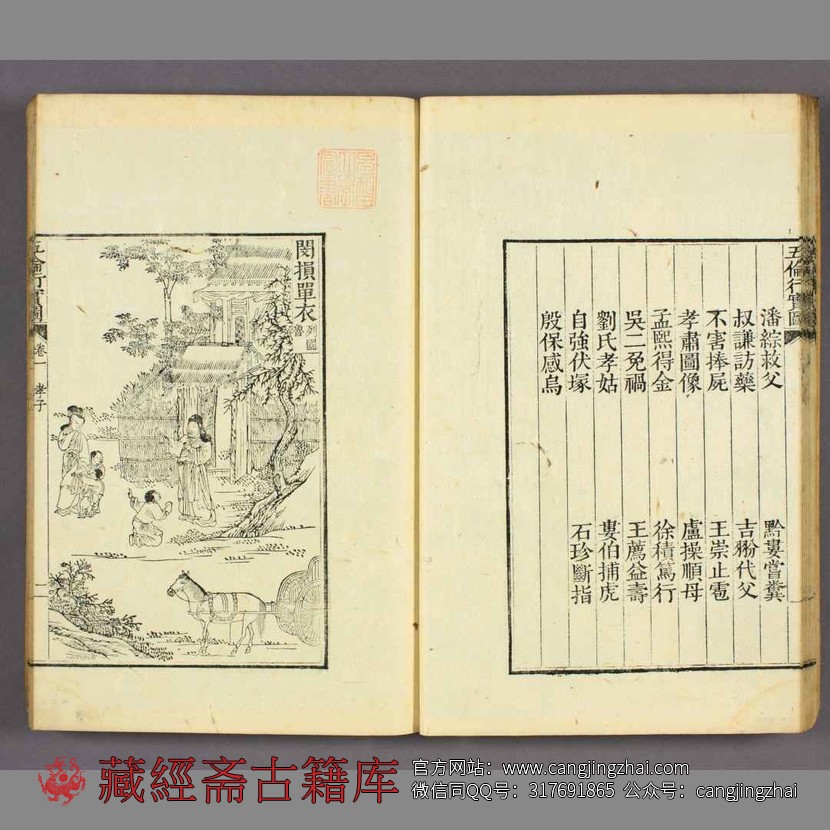 五倫行實圖
潘綜救父 黔婁嘗糞
叔謙訪藥 吉翂代父
不害捧屍 王崇止雹
孝肅圖像 盧操順母
孟熙得金 徐積篤行
吳二免禍 王薦益壽
劉氏孝姑 婁伯捕虎
自強伏塚 石珍斷指
殷保感烏
閔損單衣 列國 魯
五倫行實圖 卷一 孝子 一
藏經斋古籍库
官方网站：www.cangjingzhai.com
微信同QQ号：317691865 公众号：cangjingzhai